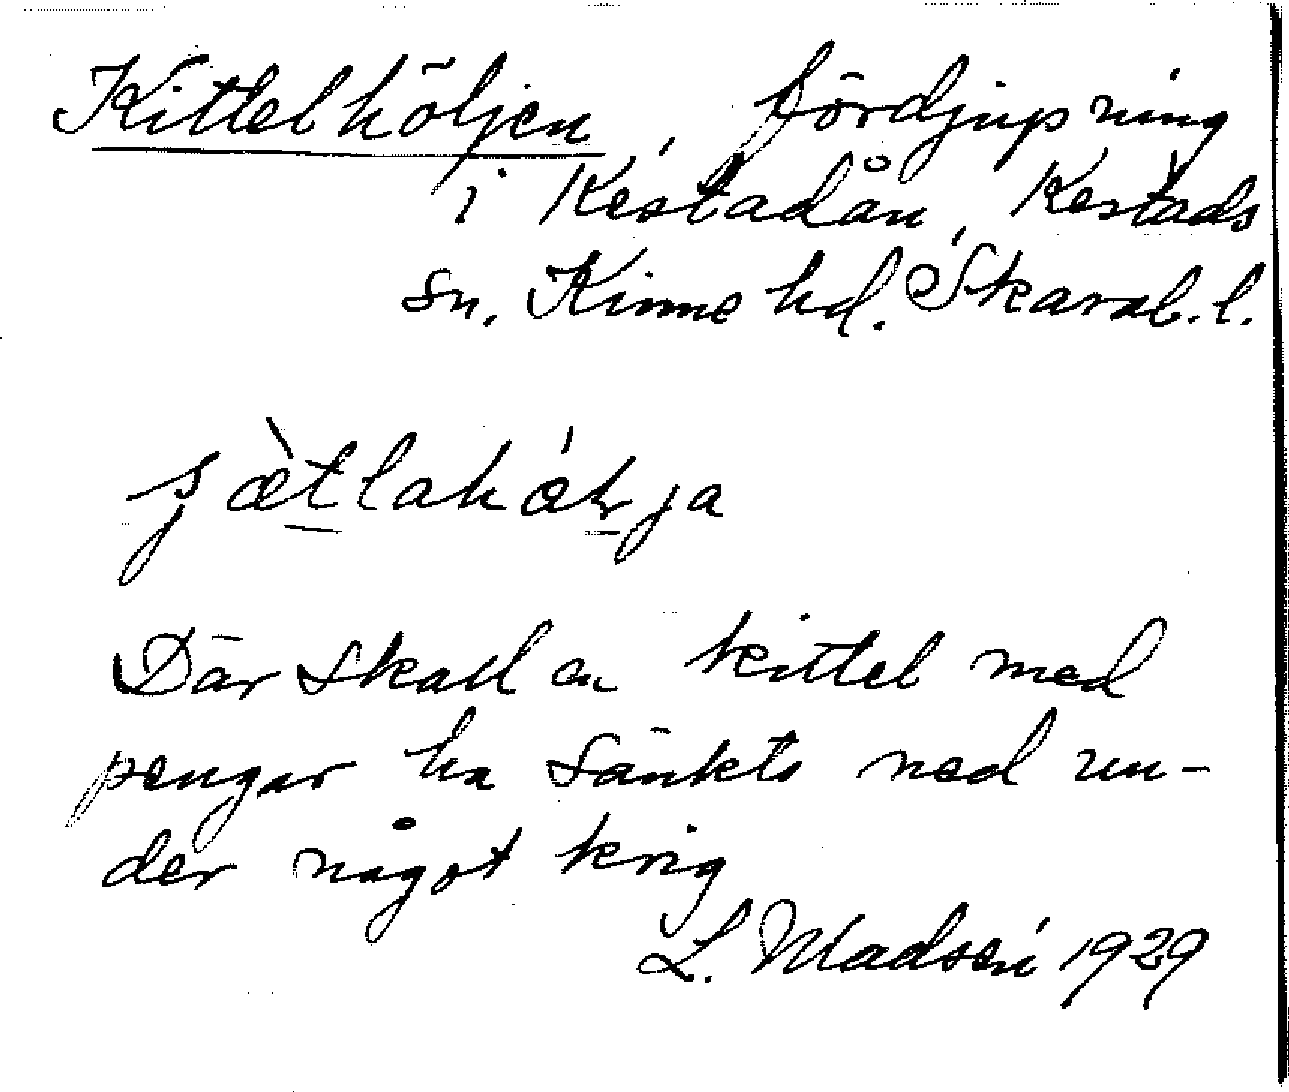 Kittelhöljen, fördjupning
i Kestadån, Kestads
sn. Kinne hd. Skarab. l.
Där skall en kittel med
pengar ha sänkts ned un-
der något krig
L. Madsén 1929